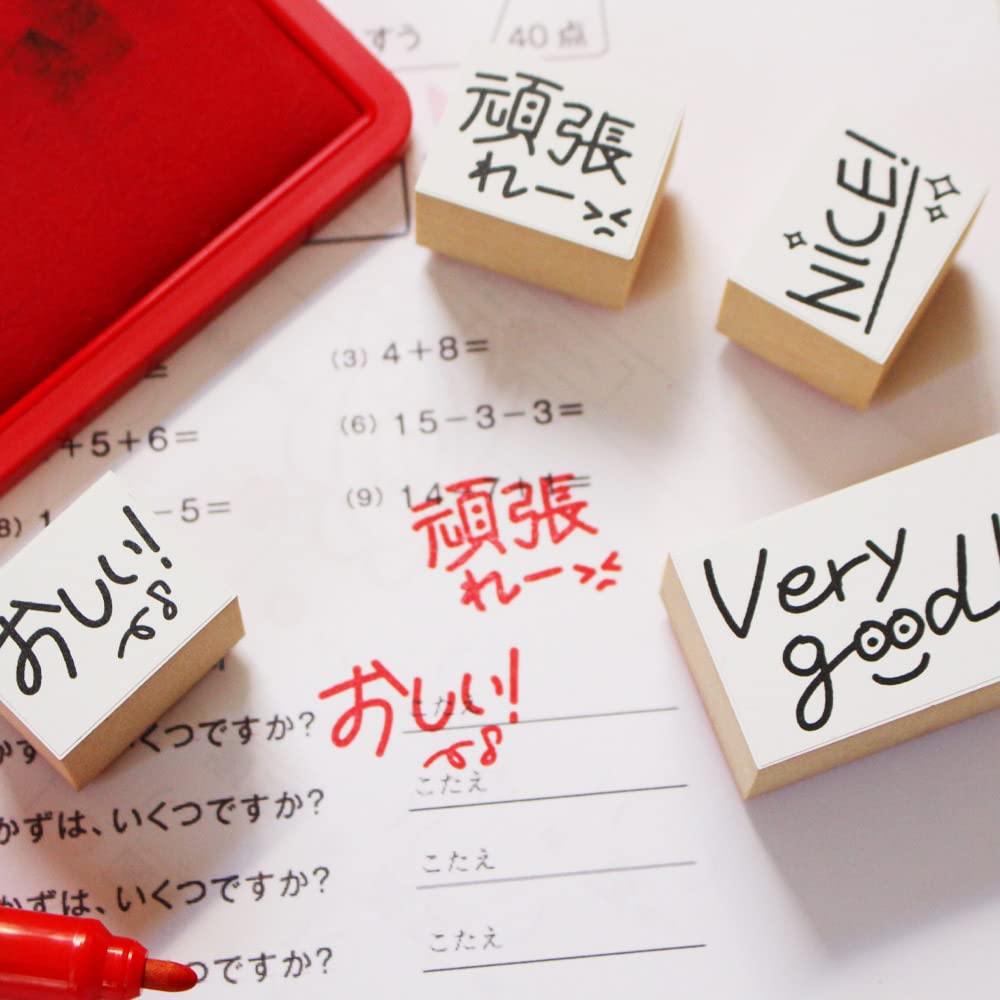 ずう
40点
頑張
れー
NICE!
(3) 4+8=
+5+6=
(6) 15-3-3=
-5=
(9) 14-7+1=
頑張
れー
おしい!
Very
good!
おしい!
くつですか?
こたえ
かずは、いくつですか?
こたえ
かずは、いくつですか?
こたえ
つですか?
こたえ